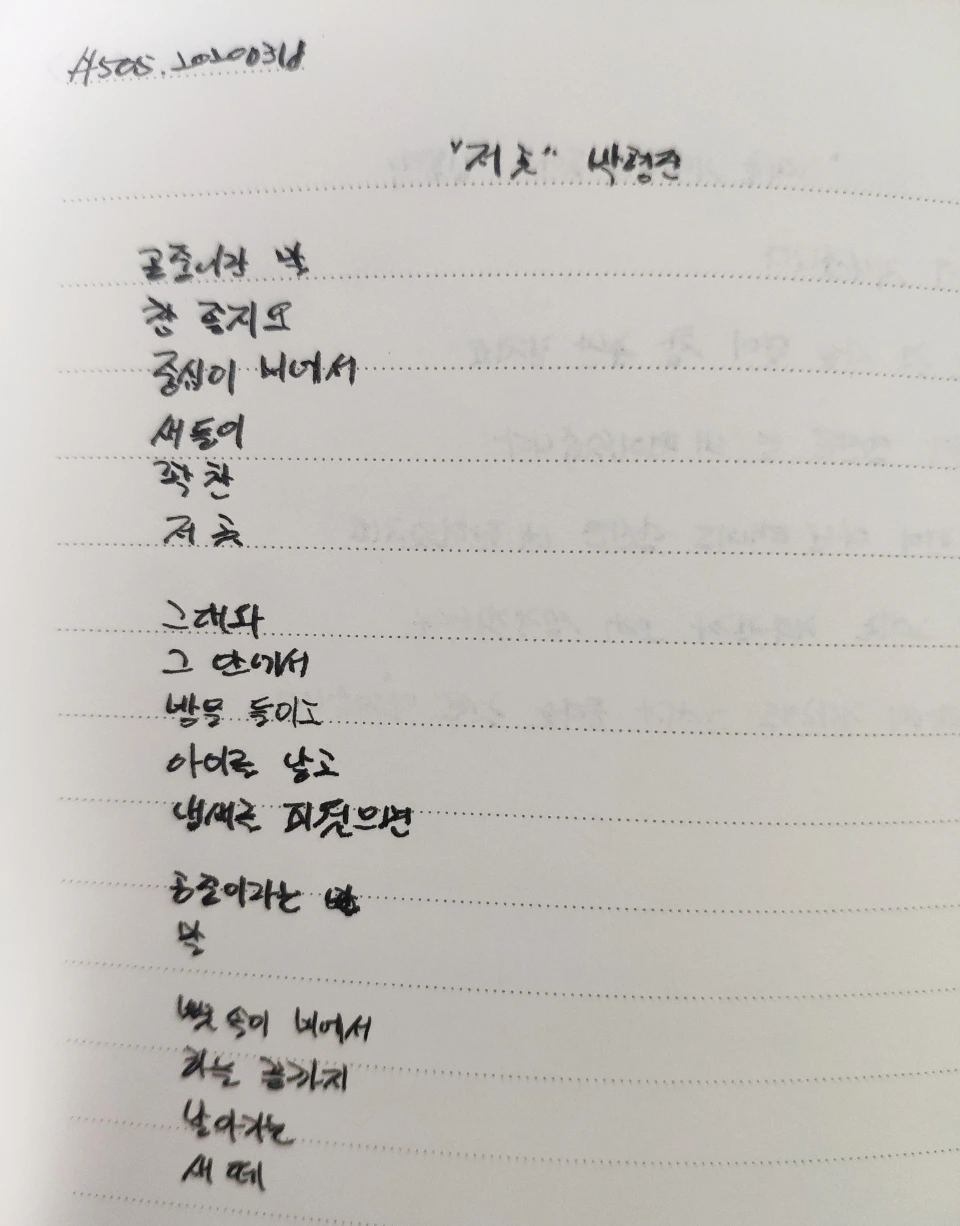 #505. 20200318
"저 곳" 박형준
공중이란 말
참 좋지요
중심이 비어서
새들이
꽉 찬
저 곳
그대와
그 안에서
방을 들이고
아이를 낳고
냄새를 피웠으면
공중이라는
말
뼛속이 비어서
하늘 끝까지
날아가는
새 떼